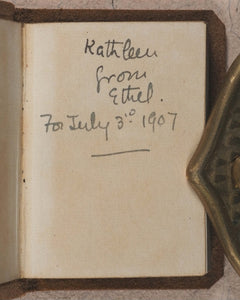 Kathleen
from
Ethel.
For July 3rd 1907